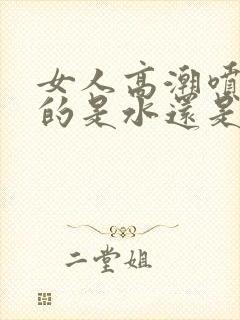 女人高潮噴
的是水還是
二堂姐